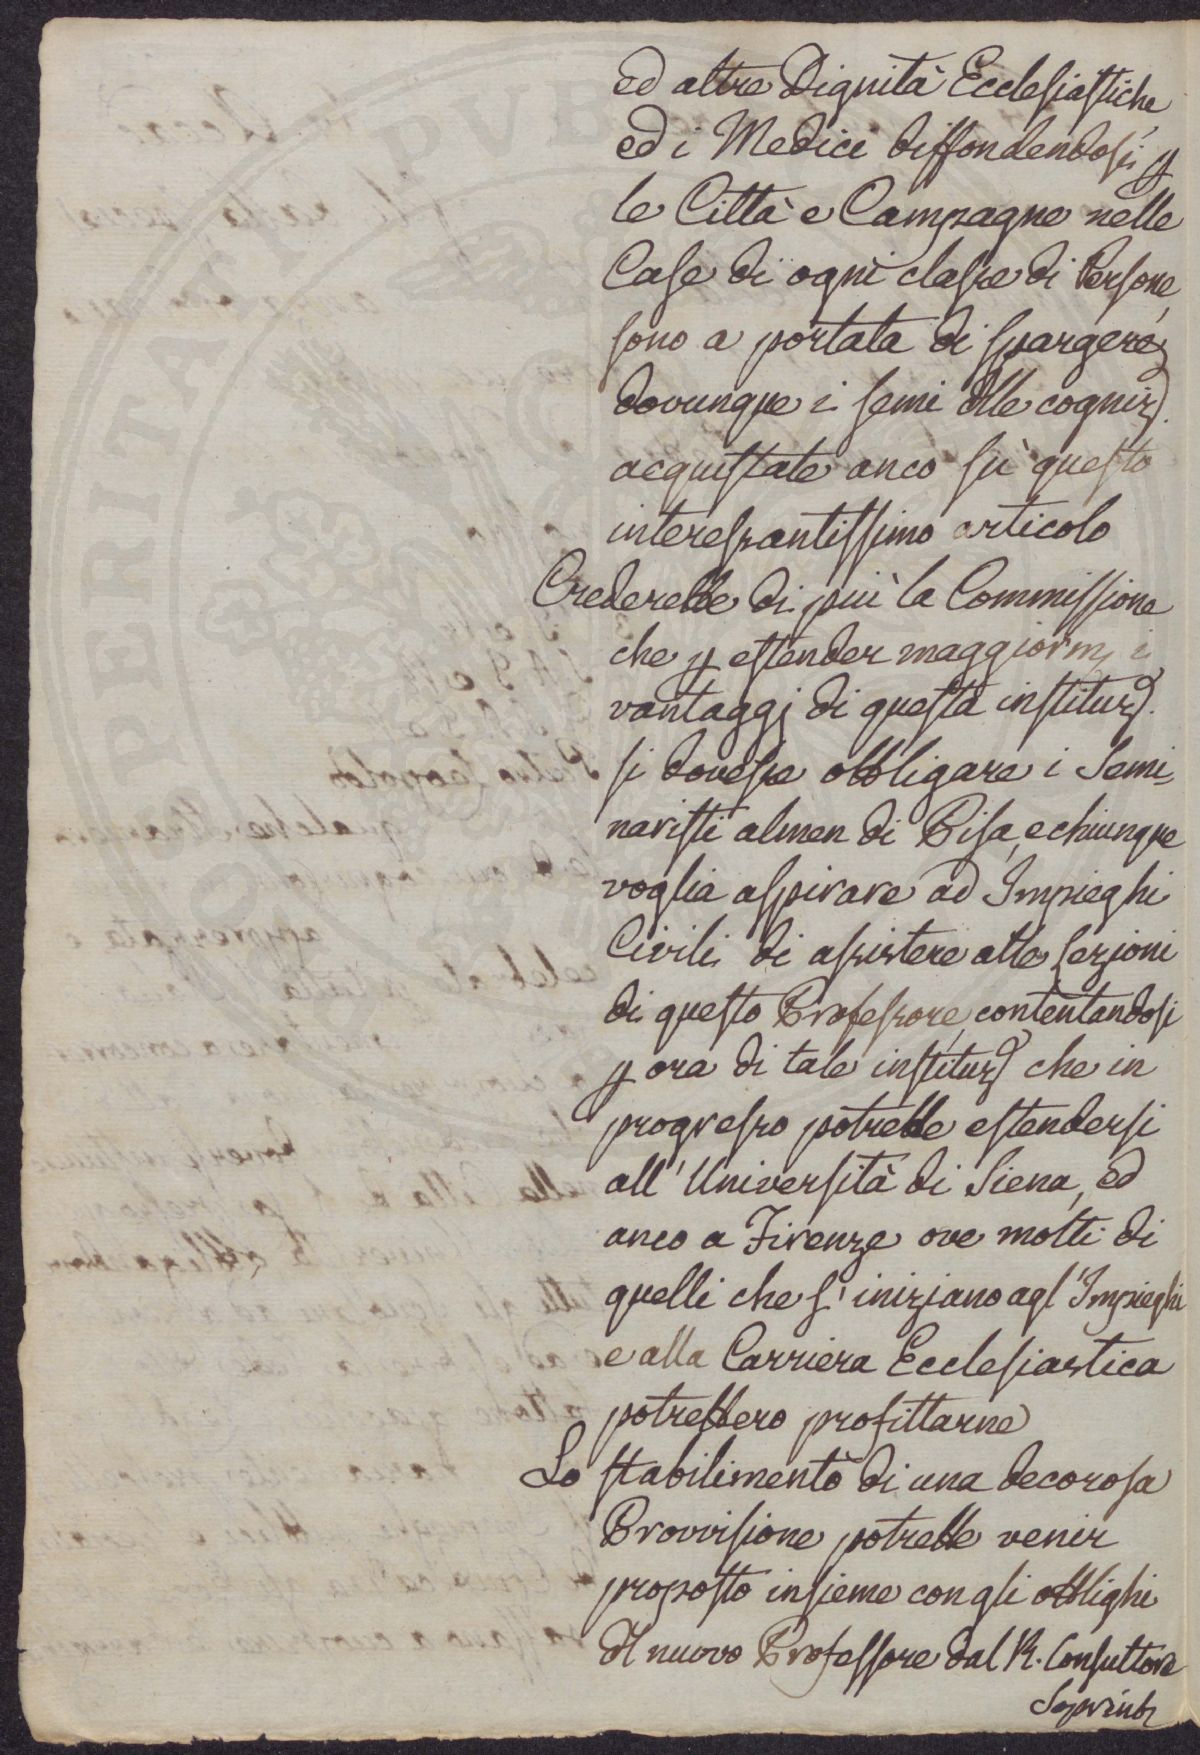 ed altre Dignità Ecclesiastiche
ed i Medici diffondendosi p
le Città e Campagne nelle
Case di ogni classe di Persone,
sono a portata di spargere
dovunque i semi dlle cogniz.
acquistate anco sù questo
interessantissimo articolo
Crederebbe di più la Commissione
che p estender maggiorm. i
vantaggj di questa instituz.
si dovesse obbligare i Semi-
naristi almen di Pisa, e chiunque
voglia aspirare ad Impieghi
Civili di assistere alle Lezioni
di questo Professore, contentandosi
p ora di tale instituz. che in
progresso potrebbe estendersi
all'Università di Siena, ed
anco a Firenze ove molti di
quelli che s'iniziano agl'Impieghi
e alla Carriera Ecclesiastica
potrebbero profittarne
Lo stabilimento di una decorosa
Provvisione potrebbe venir
proposto insieme con gli obblighi
dl nuovo Professore dal R. Consultore